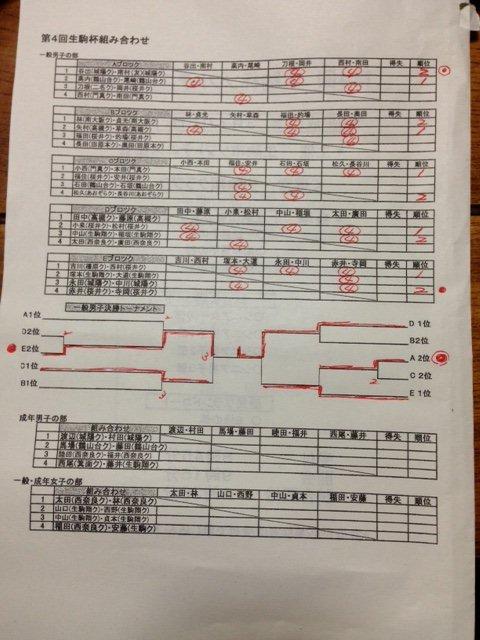 第4回生駒杯組み合わせ
一般男子の部
Aブロック 谷出・南村 高内・尾崎 刀根・岡井 西村・南田 得失 順位
1 谷出(城陽ク)・南村(友)(城陽ク) ④ ④ 2
2 高内(鶴山台ク)・尾崎(鶴山台ク) ④ ④ ④ 1
3 刀根(二名ク)・岡井(桜井ク) ④
4 西村(門真ク)・南田(門真ク) ④
Bブロック 林・貞光 矢村・草森 福田・的場 長田・奥田 得失 順位
1 林(南大阪ク)・貞光(南大阪ク) ④ ④
2 矢村(高槻ク)・草森(高槻ク) ④ ④ ④
3 福田(桜井ク)・的場(桜井ク) ④
4 長田(田原本ク)・奥田(田原本ク)
Cブロック 小西・本田 福住・安井 石田・石垣 松久・長谷川 得失 順位
1 小西(門真ク)・本田(門真ク) ④ ④ ④ 1
2 福住(桜井ク)・安井(桜井ク)
3 石田(鶴山台ク)・石垣(鶴山台ク) ④
4 松久(あおぞらク)・長谷川(あおぞらク) ④ ④ 2
Dブロック 田中・藤原 小東・松村 中山・稲垣 太田・廣田 得失 順位
1 田中(高槻ク)・藤原(高槻ク)
2 小東(桜井ク)・松村(桜井ク) ④
3 中山(生駒翔ク)・稲垣(生駒翔ク) ④ ④ ④ 1
4 太田(西奈良ク)・廣田(西奈良ク) ④
Eブロック 吉川・西村 塚本・大道 永田・中川 赤井・寺岡 得失 順位
1 吉川(藤原ク)・西村(桜井ク) ④ ④ ④ 1
2 塚本(生駒翔ク)・大道(生駒翔ク) ④
3 永田(城陽ク)・中川(城陽ク) ④ ④
4 赤井(桜井ク)・寺岡(桜井ク) 2
一般男子決勝トーナメント
A1位 D1位
D2位 B2位
E2位 A2位
C1位 C2位
B1位 E1位
成年男子の部
組み合わせ 渡辺・村田 馬場・藤田 睦田・福井 西尾・藤井 得失 順位
1 渡辺(城陽ク)・村田(城陽ク)
2 馬場(鶴山台ク)・藤田(鶴山台ク)
3 睦田(西奈良ク)・福井(西奈良ク)
4 西尾(箕面ク)・藤井(生駒翔ク)
一般・成年女子の部
組み合わせ 太田・林 山口・西野 中山・貞本 稲田・安藤 得失 順位
1 太田(西奈良ク)・林(西奈良ク)
2 山口(生駒翔ク)・西野(生駒翔ク)
3 中山(生駒翔ク)・貞本(生駒翔ク)
4 稲田(西奈良ク)・安藤(生駒ク)